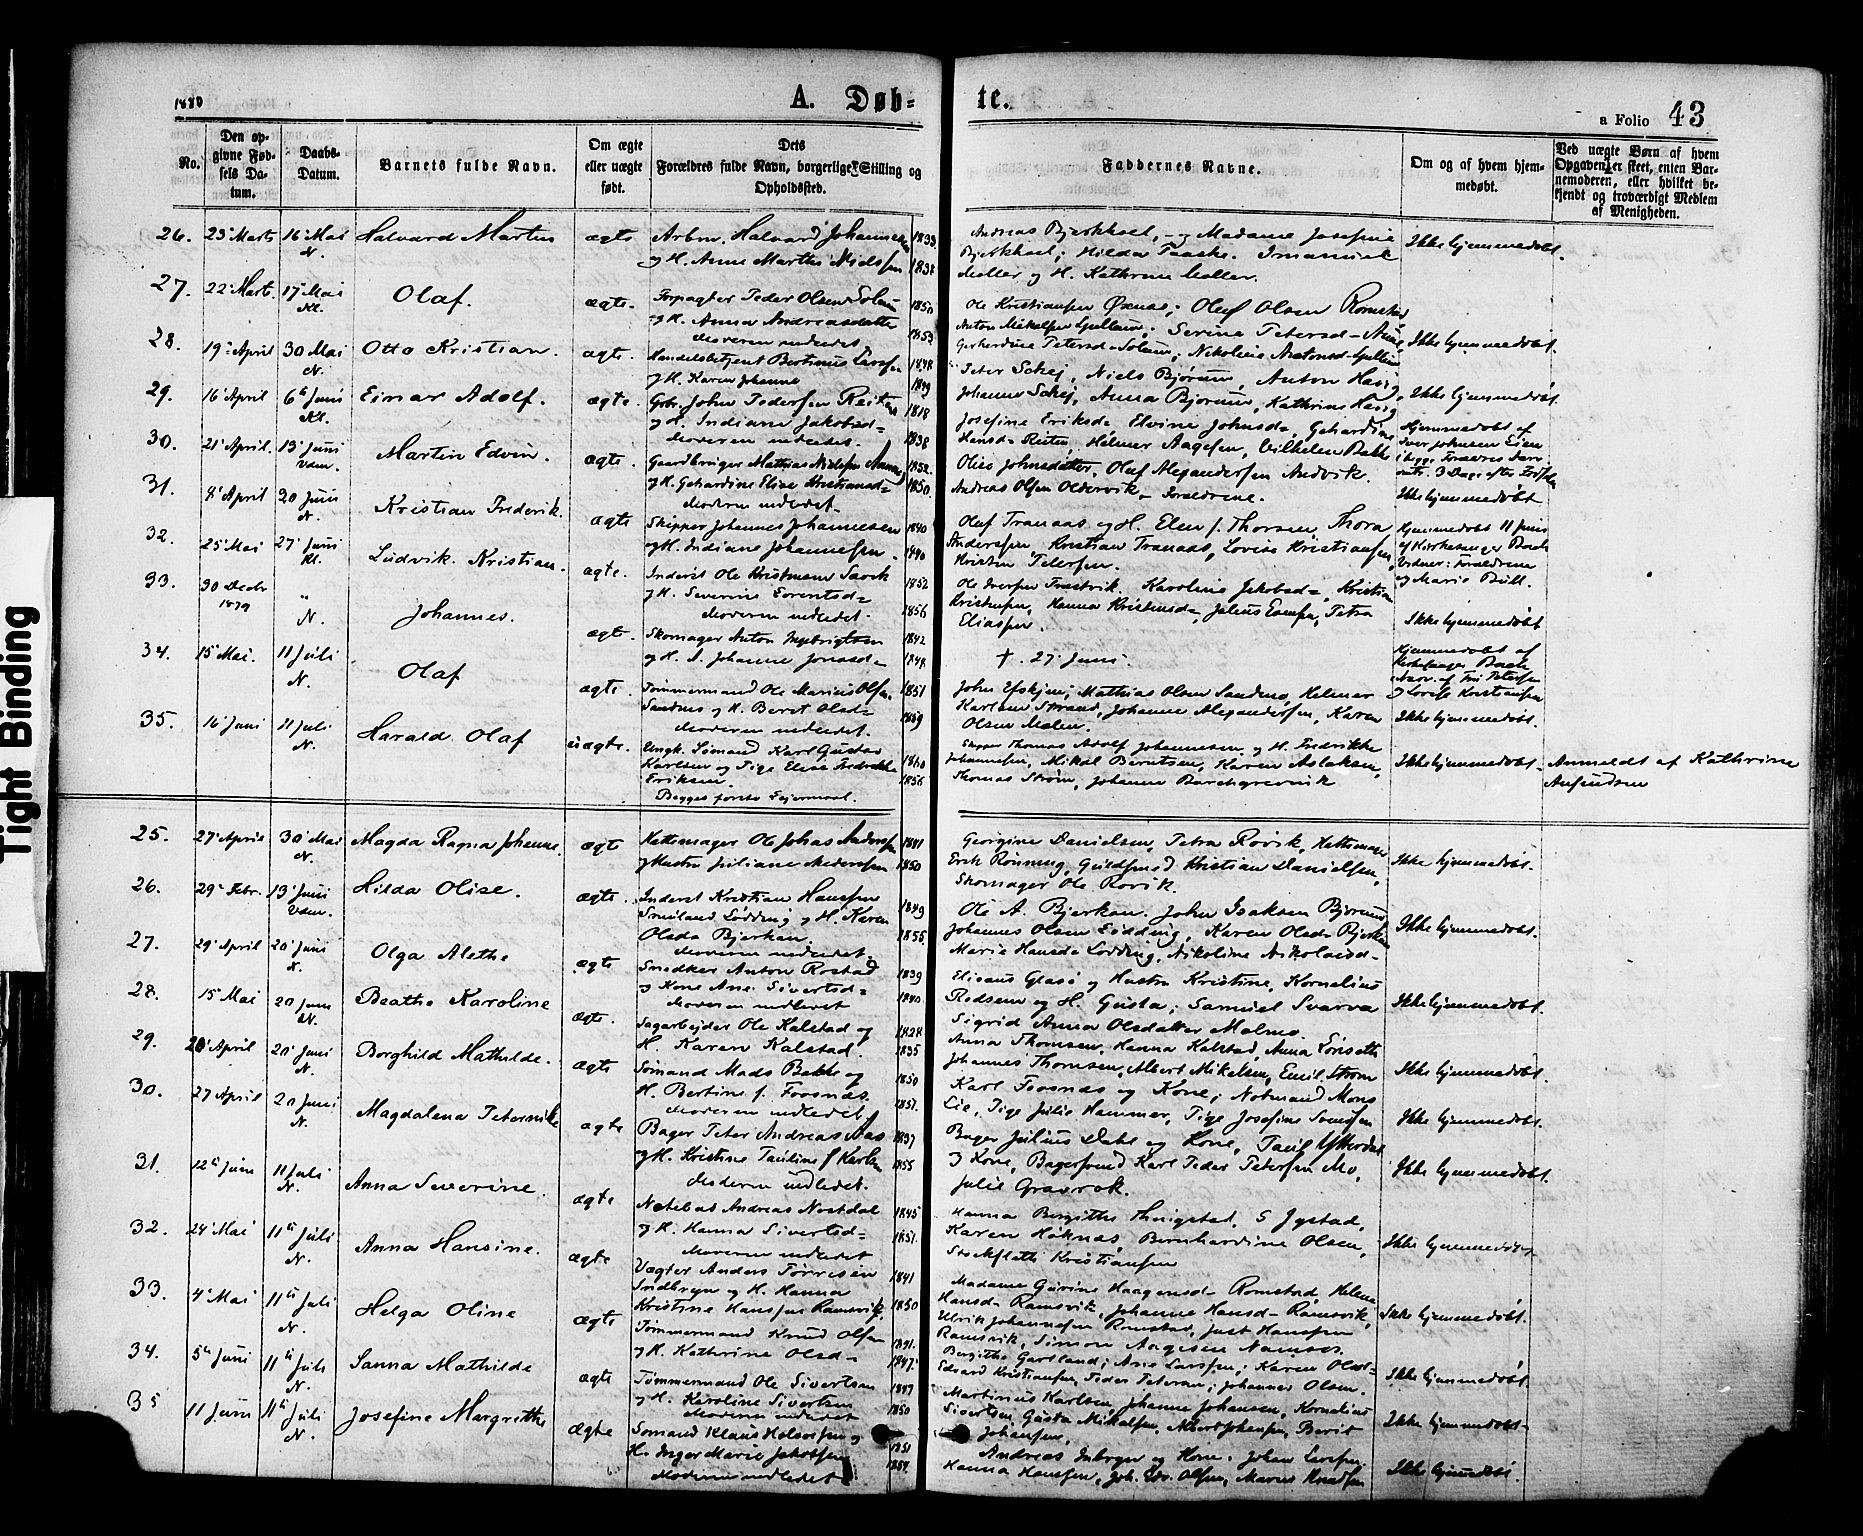 1880
A. Døb-
te.
a Folio 43
No.
Den op-
givne Fød-
sels Da-
tum.
Daabs-
Datum.
Barnets fulde Navn.
Om ægte
eller uægte
født.
Dets
Forældres fulde Navn, borgerlige Stilling og
Opholdssted.
Faddernes Navne.
Om og af hvem hjem-
medøbt.
Ved uægte Børn af hvem
Opgaven er skeet, enten Bar-
nemoderen, eller hvilket be-
kjendt og troværdigt Medlem
af Menigheden.
26. 23 Marts 16 Mai Halvard Martin ægte Arbm. Halvard Johannesen 1833
N. og H. Anne Marthe Nielssen 1838
Andreas Bjerkhoel, og Madame Josefine
Bjerkhoel; Hilda Taaske. Imanuel
Møller og H. Kathrine Møller.
Ikke hjemmedøbt.
27. 22 Mart. 17 Mai Olaf. ægte. Forpagter Peder Olsen Solum 1850
Kl. og H. Anna Andreasdatter 1853
Moderen indledet.
Ole Kristiansen Oxnas; Oluf Olsen Romstad,
Ikke hjemmedøbt.
28. 19 April 30 Mai Otto Kristian. ægte. Handelsbetjent Bertinus Larssen 1848
N. og H. Karen Johanne 1849
Peter Schej, Niels Bjørum, Anton Havig
Johanne Schej, Anna Bjørum, Kathrine Havig
Ikke hjemmedøbt.
29. 16 April 6 Juni Einar Adolf. ægte. Gbr. John Pedersen Reitan 1818
Kl. og H. Indiane Jakobsd= 1838
Moderen indledet.
Josefine Eriksd= Elvine Johnsd=, Gehardine
Hansd= Reiten, Helmer Aagesen, Vilhelm Bakke
Hjemmedøbt af
Iver Johnsen Eien
30. 21 April. 13 Juni Martin Edvin. ægte. Gaardbruger Mathias Nielsen 1852
Uden. og H. Gehardine Elise Kristiansd= 1850
Moderen indledet.
Olise Johnsdatter, Oluf Alexandersen Andvik.
Andreas Olsen Oldervik. Forældrene.
Ikke hjemmedøbt
31. 8 April 20 Juni Kristian Frederik. ægte Skipper Johannes Johannesen 1840
N. og H. Indiane Johannessen 1840
Oluf Tranaas og H. Elen f. Thorsen, Thora
Anderssen, Kristian Tranaas, Lovise Kristiansen,
Kristen Petersen.
Hjemmedøbt 11 Juni
af Kirkesanger Bach
Vidner: Forældrene
og Marie Bull.
32. 25 Mai 27 Juni Ludvik Kristian. ægte. Inderst Ole Kristiansen 1852
Kl. og H. Severine Lorentsd= 1856
Moderen indledet.
Kristensen, Hanna Kristensd=, Petra
Eliassen.
Ikke hjemmedøbt
33. 30 Decbr 1879 " N. Johannes. ægte. Skomager Anton Ingebrigtsen 1842
og H. Johanne Jonasd= 1848
† 27 Juni.
Hjemmedøbt af
Kirkesanger Bach
34. 15 Mai. 11 Juli Olaf ægte. Tømmermand Ole Marius Olsen 1851
N. Sandnes og H. Beret Olsd= 1859
Moderen indledet.
Mathias Olsen Sandnes, Helmer
Karlsen Strand, Johanne Alexandersen, Karen
Olsen Malen.
Ikke hjemmedøbt.
35. 16 Juni 11 Juli Harald Olaf uægte. Ungk. Sømand Karl Gustav
N. Karlsen og Pige Elise Fredrikke 1860
Eriksen 1856
Begges første Leiermaal.
Skipper Thomas Adolf Johannesen og H. Fredrikke
Johannesen, Mikal Berntsen, Karen Aslaksen,
Thomas Strøm, Johanne Borchgrevink
Ikke hjemmedøbt.
Anmeldt af Kathrine
25. 27 April 30 Mai Magda Ragna Johanne. ægte Hattemager Ole Johas Anderssen 1841
N. og Hustru Juliane Anderssen 1850
Georgine Danielsen, Petra Rovik, Hattemager
Erik Rønning, Guldsmed Kristian Danielsen,
Skomager Ole Rovik.
Ikke hjemmedøbt.
26. 29 Febr. 13 Juni Hilda Olise. ægte. Inderst Kristian Hanssen 1849
Uden. Smiland Lødding og H. Karen
Olsda Bjerkan. 1855
Moderen indledet.
Ole A. Bjerkan. John Isaksen Bjørum
Johannes Olsen Lødding, Karen Olsd= Bjerkan
Marie Hansd= Lødding, Nikoline Nikolaisd=
Ikke hjemmedøbt.
27. 29 April 20 Juni Olga Alethe ægte Snedker Anton Rostad 1839
N. og Kone Ane Sivertsd= 1840
Moderen indledet
Eliseus Glasø og Hustru Kristine, Kornelius
Rodsem og H. Gusta; Samuel Svarva
Sigrid Anna Olsdatter Malmo.
Ikke hjemmedøbt.
28. 15 Mai 20 Juni Beathe Karoline ægte. Sagarbejder Ole Kalstad og 1828
N. H. Karen Kalstad. 1835
Anna Thomsen, Hanna Kalstad, Anna Lonseth
Johannes Thomsen, Albert Mikelsen, Emil Strøm
Ikke hjemmedøbt.
29. 20 April 20 Juni Borghild Mathilde. ægte Sømand Mads Bakke og 1850
N. H. Bertine f. Foosnæs. 1851
Moderen indledet.
Karl Foosnæs og Kone; Notmand Mons
Lie, Pige Julie Hammer, Pige Josefine Svensen
Ikke hjemmedøbt.
30. 27 April 20 Juni Magdalena Peternike ægte Bager Peter Andreas Aas 1837
N. og H. Kristine Pauline f. Karlsen 1855
Moderen indledet.
Bager Julius Dahl og Kone, Paul Ytterdal
og Kone, Bagersvend Karl Peder Petersen Mo,
Julie Gravrok.
Ikke hjemmedøbt.
31. 12 Juni 11 Juli Anna Severine. ægte Notebas Andreas Nostdal 1845
N. og H. Hanna Sivertsd= 1851
Moderen indledet
Hanna Bergitte
Karen Høknes, Bernhardine Olsen,
Stockfleth Kristiansen
Ikke hjemmedøbt
32. 24 Mai 11 Juli Anna Hansine. ægte Vægter Anders Tørresen 1841
N. Indbryn og H. Hanna
Kristine Hanssen Ramsvik. 1850
Madame Gurine Haagensd= Romstad Helene
Hansd= Ramsvik, Johanne Hansd= Ramsvik,
Ulrik Johannesen Romstad, Just Hanssen
Ramsvik, Simon Aagesen Namsos.
Ikke hjemmedøbt.
33. 4 Mai 11 Juli Helga Oline ægte Tømmermand Knud Olsen 1841
N. og H. Kathrine Olsd= 1847
Bergithe Garlland; Ane Larssen; Karen Olsd=
Edvard Kristiansen, Peder Petersen; Johannes Olsen.
Ikke hjemmedøbt.
34. 5 Juni 11 Juli Sanna Mathilde ægte Tømmermand Ole Sivertsen 1847
N. og H. Karoline Sivertsen 1850
Moderen indledet
Martinius Karlsen, Johanne Johansen, Kornelius
Sivertsen, Gusta Mikalsen, Albert Johansen, Berit
Johansen,
Ikke hjemmedøbt.
35 11 Juni 11 Juli Josefine Margrethe Ægte Sømand Klaus Halvorsen og 1851
N. H. Inger Marie Jakobsen 1854
Moderen indledet
Andreas Inbryn og Kone. Johan Larssen.
Hanna Hanssen, Joh. Edv. Olsen, Marius Knudsen
Ikke hjemmedøbt.
Tight Binding